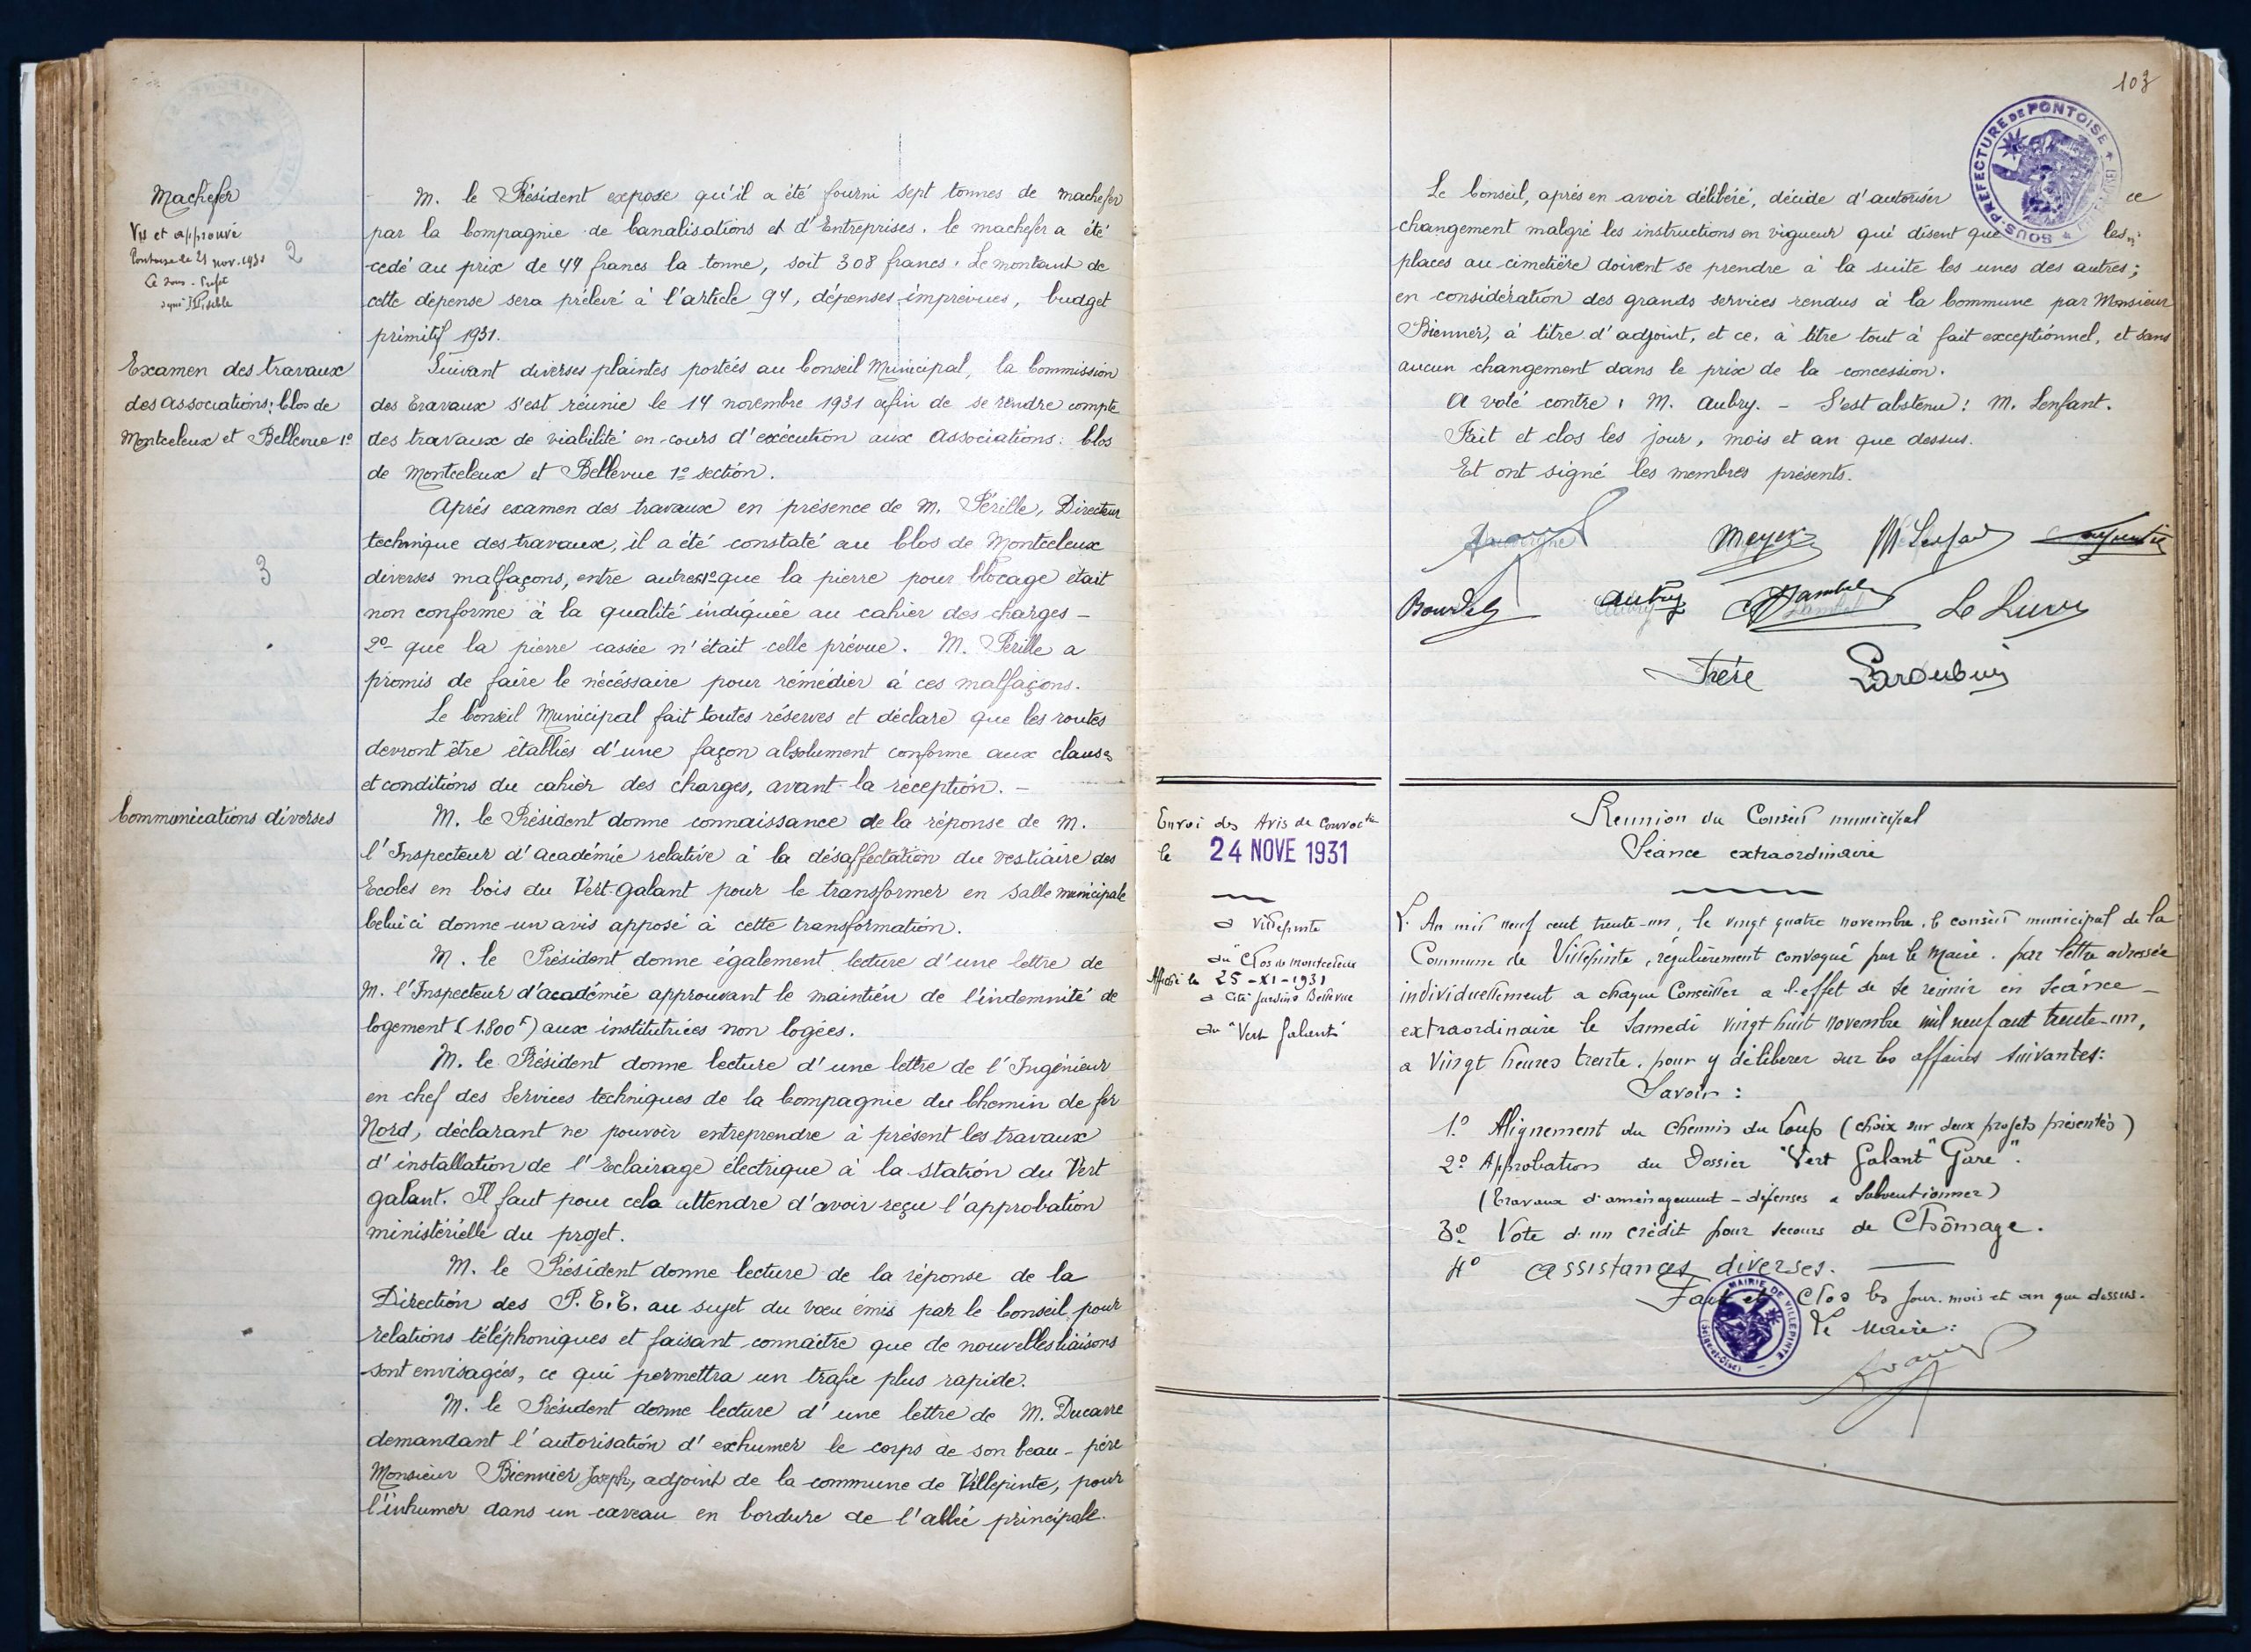 Machefer
Vu et approuvé
Pontoise le 21 nov. 1931
Le Sous-Préfet
2
M. le Président expose qu'il a été fourni sept tonnes de machefer
par la Compagnie de Canalisations et d'Entreprises. le machefer a été
cédé au prix de 44 francs la tonne, soit 308 francs. Le montant de
cette dépense sera prélevé à l'article 94, dépenses imprévues, budget
primitif 1931.
Examen des travaux
des associations: Clos de
Montceleux et Bellevue 1º
3
Suivant diverses plaintes portées au Conseil Municipal, la Commission
des Travaux s'est réunie le 14 novembre 1931 afin de se rendre compte
des travaux de viabilité en cours d'exécution aux associations: Clos
de Montceleux et Bellevue 1º section.
Après examen des travaux en présence de M. Pérille, Directeur
technique des travaux, il a été constaté au Clos de Montceleux
diverses malfaçons, entre autres 1º que la pierre pour blocage était
non conforme à la qualité indiquée au cahier des charges -
2º- que la pierre cassée n'était celle prévue. M. Pérille a
promis de faire le nécéssaire pour rémédier à ces malfaçons.
Le Conseil Municipal fait toutes réserves et déclare que les routes
devront être établies d'une façon absolument conforme aux clauses
et conditions du cahier des charges, avant la réception. -
Communications diverses
M. le Président donne connaissance de la réponse de M.
l'Inspecteur d'académie relative à la désaffectation du vestiaire des
Ecoles en bois du Vert-Galant pour le transformer en salle municipale
Celui ci donne un avis apposé à cette transformation.
M. le Président donne également lecture d'une lettre de
M. l'Inspecteur d'académie approuvant le maintien de l'indemnité de
logement (1.800 f) aux institutrices non logées.
M. le Président donne lecture d'une lettre de l'Ingénieur
en chef des Services techniques de la Compagnie du Chemin de fer
Nord, déclarant ne pouvoir entreprendre à présent les travaux
d'installation de l'Eclairage électrique à la station du Vert
galant. Il faut pour cela attendre d'avoir reçu l'approbation
ministérielle du projet.
M. le Président donne lecture de la réponse de la
Direction des P.T.T. au sujet du vœu émis par le Conseil pour
relations téléphoniques et faisant connaitre que de nouvelles liaisons
sont envisagées, ce qui permettra un trafic plus rapide.
M. le Président donne lecture d'une lettre de M. Ducarre
demandant l'autorisation d'exhumer le corps de son beau-père
Monsieur Biennier Joseph, adjoint de la commune de Villepinte, pour
l'inhumer dans un caveau en bordure de l'allée principale.
103
SOUS-PRÉFECTURE DE PONTOISE
Le Conseil, après en avoir délibéré, décide d'autoriser ce
changement malgré les instructions en vigueur qui disent que les
places au cimetière doivent se prendre à la suite les unes des autres;
en considération des grands services rendus à la Commune par Monsieur
Bienner, à titre d'adjoint, et ce, à titre tout à fait exceptionnel, et sans
aucun changement dans le prix de la concession.
A voté contre: M. Aubry. - S'est abstenu: M. Lenfant.
Fait et clos les jour, mois et an que dessus.
Et ont signé les membres présents.
Meyer
Aubry
Lambel
Frére
Envoi des Avis de Convoction
le 24 NOVE 1931
à Villepinte
au Clos de Montceleux
Affiché le 25-XI-1931
à Cité Jardins Bellevue
au "Vert Galant"
Reunion du Conseil municipal
Séance extraordinaire
L'An mil neuf cent trente-un, le vingt quatre novembre, le conseil municipal de la
Commune de Villepinte, régulièrement convoqué par le Maire. par lettre adressée
individuellement a chaque Conseiller a l'effet de se réunir en séance
extraordinaire le Samedi vingt huit novembre mil neuf cent trente-un,
a vingt heures trente. pour y délibérer sur les affaires suivantes:
Savoir:
1º Alignement du Chemin du Loup (choix sur deux projets présentés)
2º Approbation du Dossier "Vert Galant" Gare".
(Travaux d'aménagement - dépenses a subventionner)
3º Vote d'un crédit pour secours de Chômage.
4º Assistances diverses.
Fait et Clos les Jour. mois et an que dessus.
Le Maire:
MAIRIE DE VILLEPINTE (SEINE-ET-OISE)